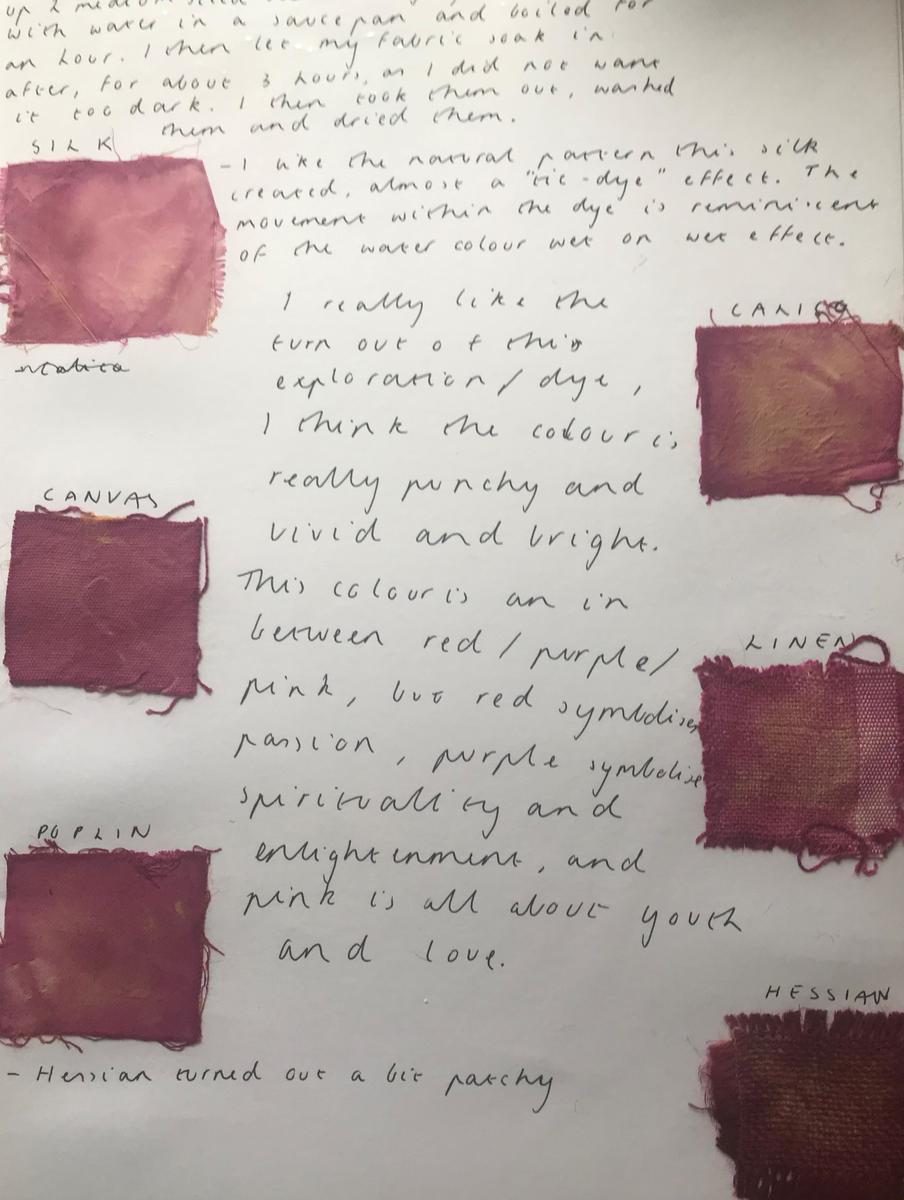 up 2 medium
with water in a saucepan and boiled for
an hour. I then let my fabric soak in
after, for about 3 hours, as I did not want
it too dark. I then took them out, washed
them and dried them.
SILK
- I like the natural pattern this silk
created, almost a "tie-dye" effect. The
movement within the dye is reminiscent
of the water colour wet on wet effect.
CALICO
I really like the
turn out of this
exploration/dye,
I think the colour is
really punchy and
vivid and bright.
CANVAS
This colour is an in
between red/purple/
pink, but red symbolises
passion, purple symbolise
spirituality and
enlightenment, and
pink is all about youth
and love.
LINEN
POPLIN
HESSIAN
- Hessian turned out a bit patchy